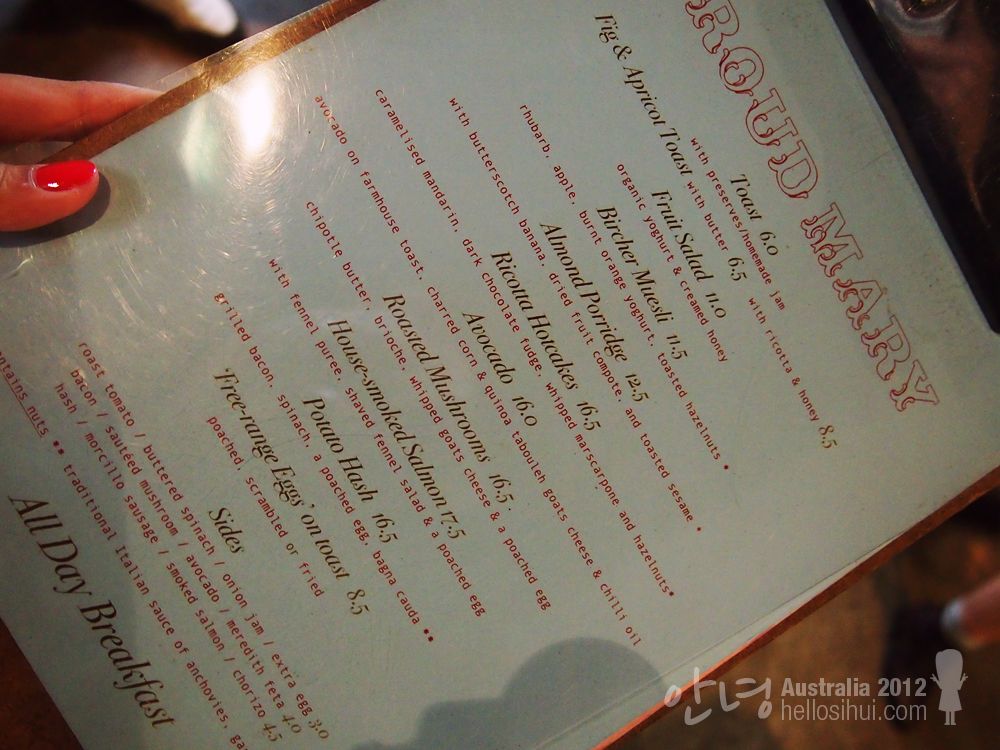 ROUD MARY
Toast 6.0
with preserves/homemade jam
Fig & Apricot Toast with butter 6.5 with ricotta & honey 8.5
Fruit Salad 11.0
organic yoghurt & creamed honey
Bircher Muesli 11.5
rhubarb, apple, burnt orange yoghurt, toasted hazelnuts *
Almond Porridge 12.5
with butterscotch banana, dried fruit compote, and toasted sesame *
Ricotta Hotcakes 16.5
caramelised mandarin, dark chocolate fudge, whipped marscarpone and hazelnuts*
Avocado 16.0
avocado on farmhouse toast, charred corn & quinoa tabouleh goats cheese & chilli oil
Roasted Mushrooms 16.5.
chipotle butter, brioche, whipped goats cheese & a poached egg
House-smoked Salmon 17.5
with fennel puree, shaved fennel salad & a poached egg
Potato Hash 16.5
grilled bacon, spinach, a poached egg, bagna cauda **
'Free-range Eggs' on toast 8.5
poached, scrambled or fried
Sides
roast tomato / buttered spinach / onion jam / extra egg 3.0
bacon / sautéed mushroom / avocado / meredith feta 4.0
hash / morcillo sausage / smoked salmon / chorizo 4.5
ontains nuts ** traditional Italian sauce of anchovies, ga
All Day Breakfast
안녕 Australia 2012
hellosihui.com